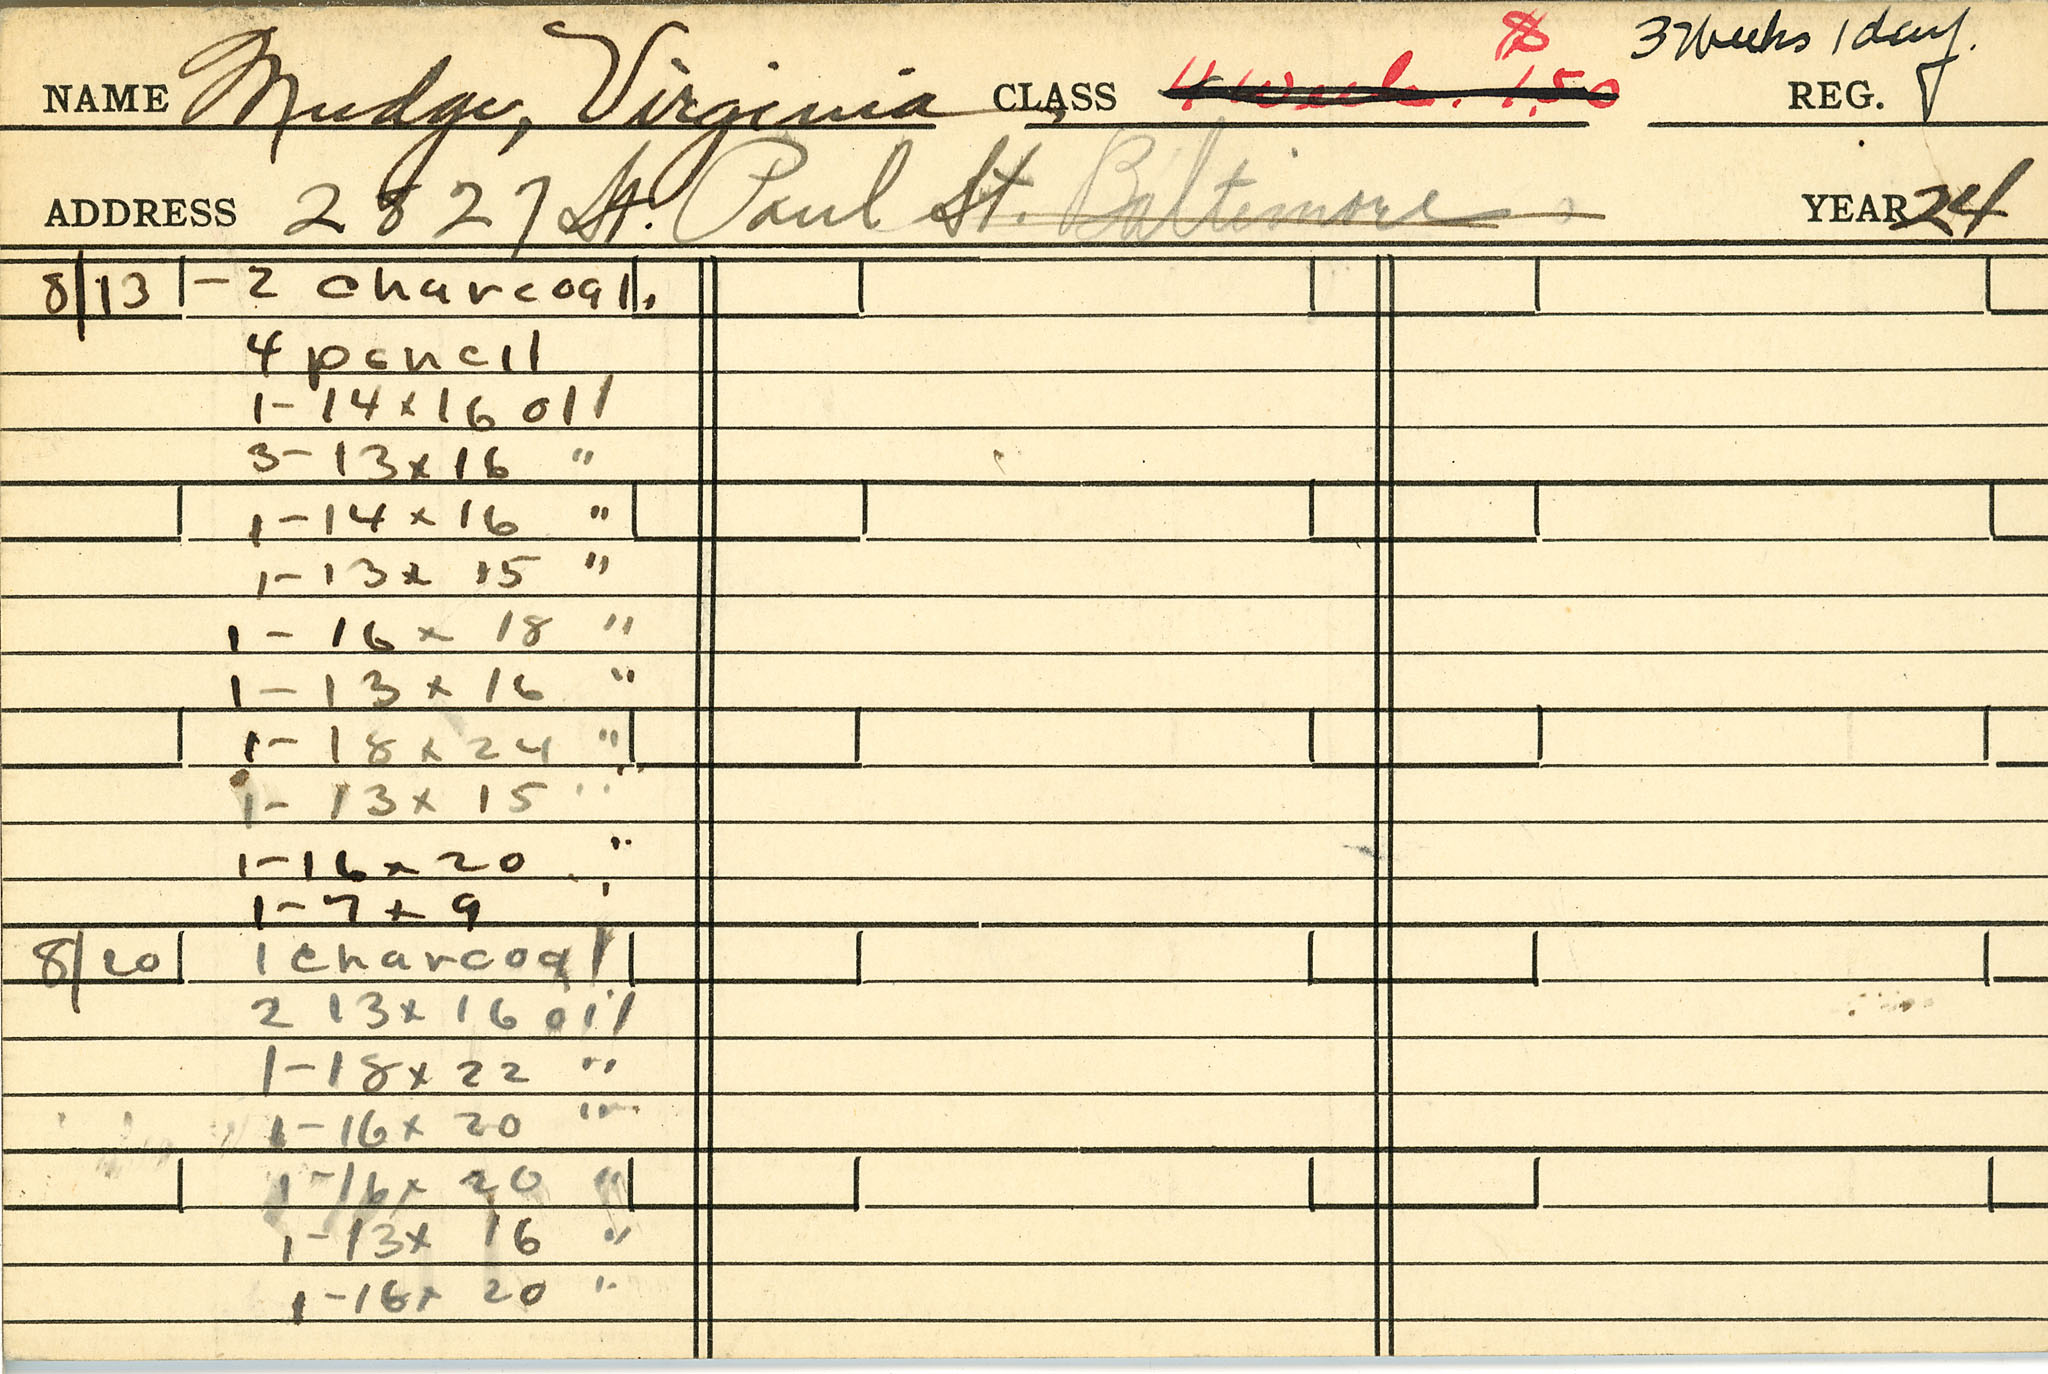 $ 3 Weeks 1 day.
NAME Mudge, Virginia CLASS 4 Week. 1.50 REG.
ADDRESS 2827 St. Paul St. Baltimore YEAR 24
8/13 - 2 charcoal,
4 pencil
1-14x16 oil
3-13x16 "
1-14x16 "
1-13x15 "
1-16x18 "
1-13x16 "
1-18x24 "
1-13x15 "
1-16x20 "
1-7x9 "
8/20 1 charcoal
2 13x16 oil
1-18x22 "
1-16x20 "
1-16x20 "
1-13x16 "
1-16x20 "